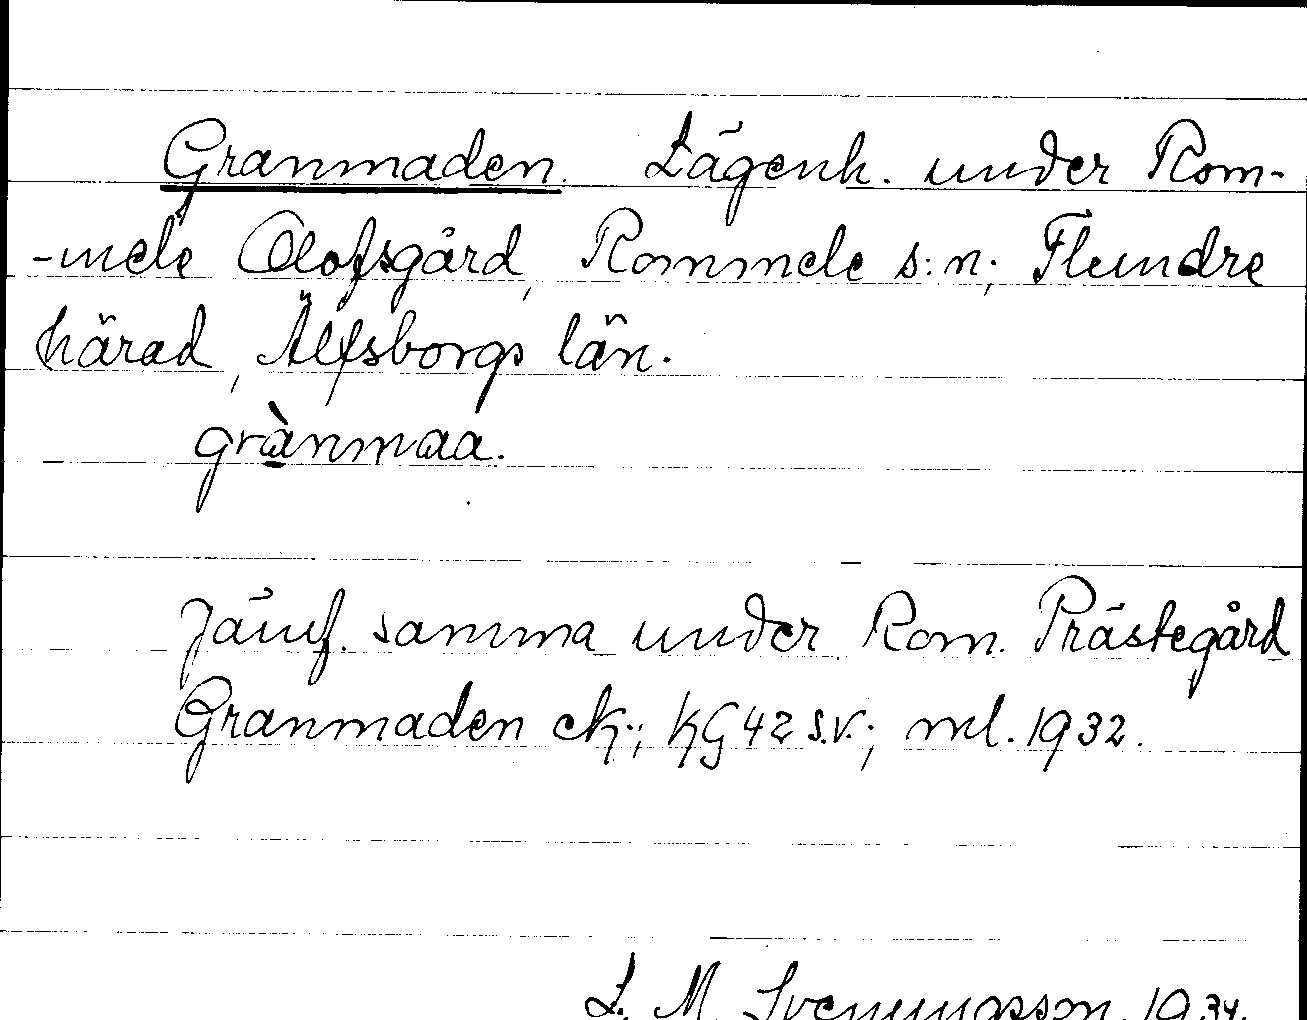 Granmaden. Lägenh. under Rom-
-mele Olofsgård, Rommele s:n; Flundre
härad, Älfsborgs län.
grànmaa.
Jämf. samma under Rom. Prästegård
Granmaden ek.; KG 42 s.v.; ml. 1932.
L. M. Svenungsson 1934.